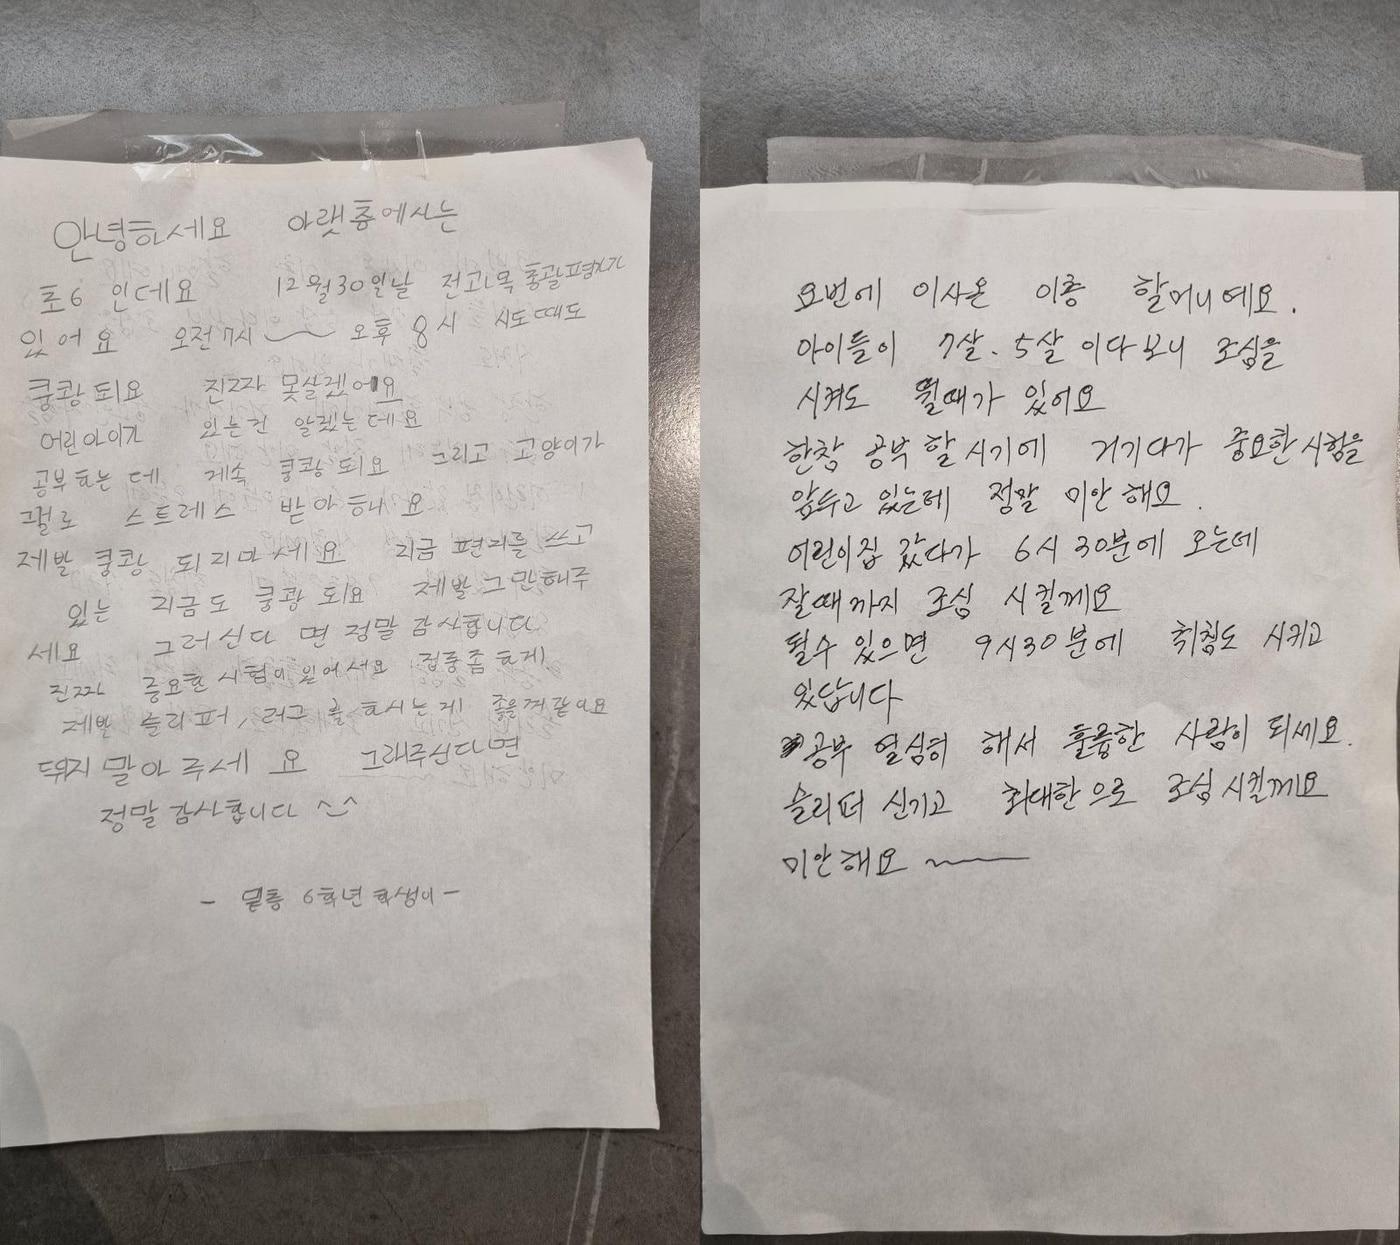 안녕하세요 아랫층에사는
초6 인데요 12월30일날 전과목 총괄평가가
있어요 오전7시 ~ 오후 8시 시도때도
쿵쾅 되요 진짜 못살겠어요
어린아이가 있는건 알겠는데요
공부하는 데 게속 쿵쾅 되요 그리고 고양이가
그걸로 스트레스 받아해요
제발 쿵쾅 되지마세요 지금 편지를 쓰고
있는 지금도 쿵쾅 되요 제발 그만해주
세요 그러신다 면 정말 감사합니다
진짜 중요한 시험이 있어서요 집중좀 하게
제발 슬리퍼, 러그 를 하시는게 좋을꺼같아요
뛰지 말아 주세 요 그래주신다면
정말 감사합니다 ^^
- 밑층 6학년 학생이 -
요번에 이사온 이층 할머니예요.
아이들이 7살. 5살 이다보니 조심을
시켜도 뛸때가 있어요
한참 공부 할 시기에 거기다가 중요한 시험을
앞두고 있는데 정말 미안 해요.
어린이집 갔다가 6시 30분에 오는데
잘때까지 조심 시킬께요
될수 있으면 9시30분에 취침도 시키고
있답니다
공부 열심히 해서 훌륭한 사람이 되세요.
슬리퍼 신기고 최대한으로 조심 시킬께요
미안해요 ~